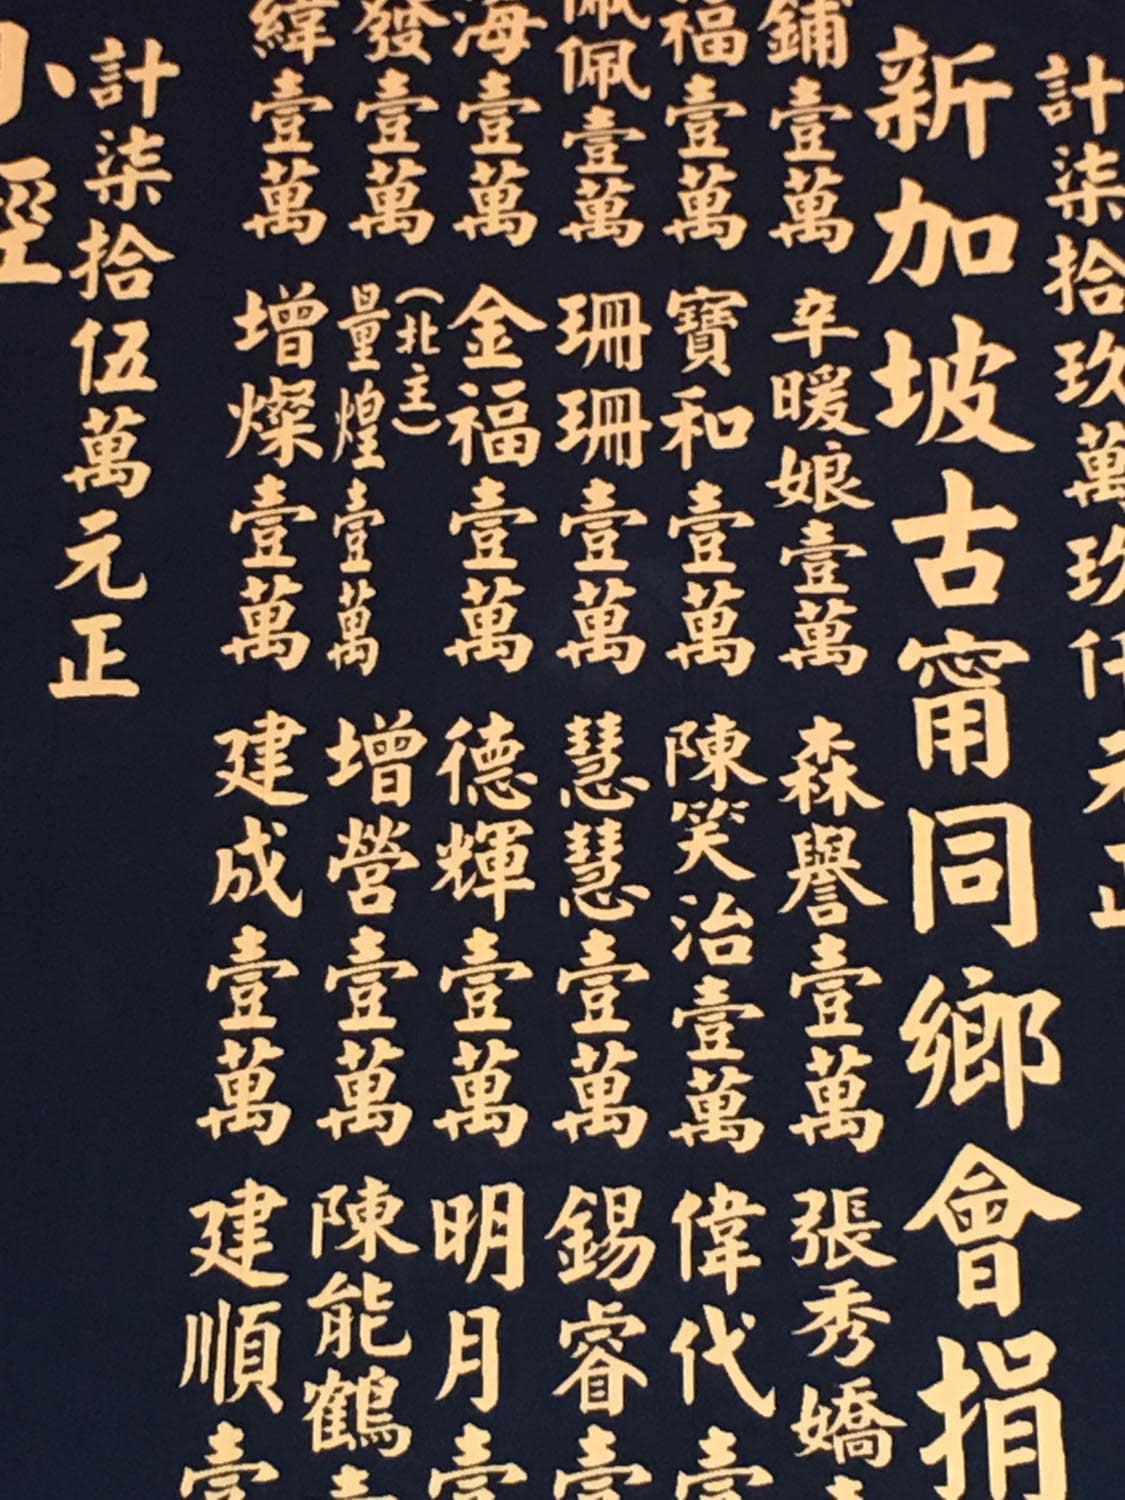 計柒拾玖萬玖仟元正
新加坡古甯同鄉會捐
鋪壹萬 卒暖娘壹萬 森譽壹萬 張秀嬌
福壹萬 寶和壹萬 陳笑治壹萬 偉代壹
佩佩壹萬 珊珊壹萬 慧慧壹萬 錫睿壹
海壹萬 金福壹萬 德輝壹萬 明月壹
發壹萬 (北主)量煌壹萬 增營壹萬 陳能鶴
緯壹萬 增燦壹萬 建成壹萬 建順壹
計柒拾伍萬元正